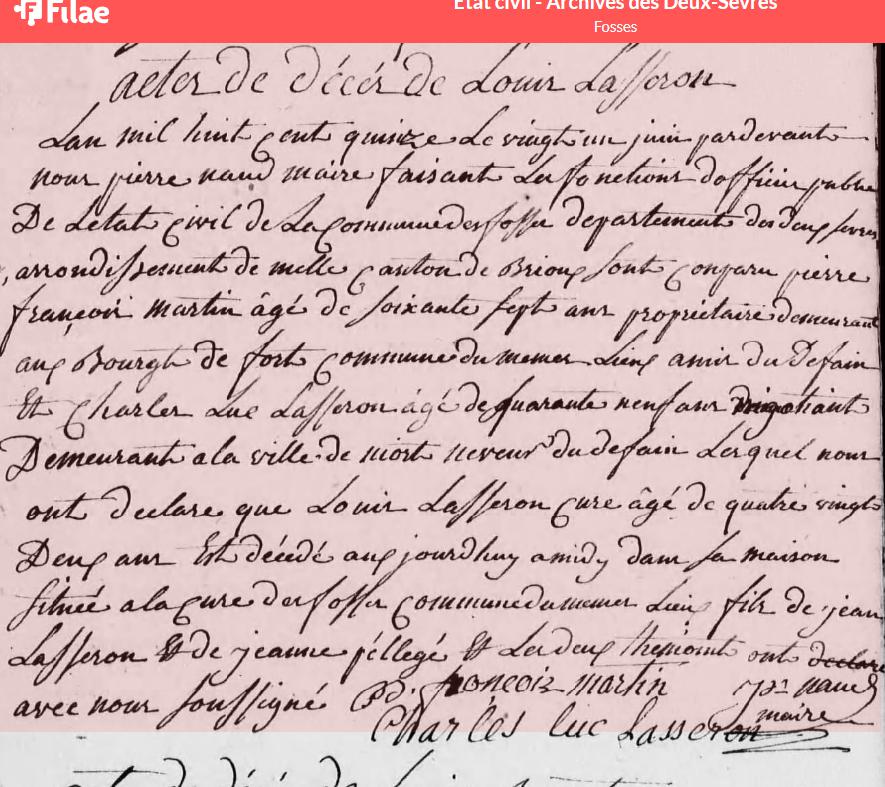 Filae
Etat civil - Archives des Deux-Sèvres
Fosses
actes de décés de Louis Lasseron
Lan mil huit cent quinze Le vingt un juin pardevant
nous pierre naud maire faisant Les fonctions dofficier public
De Letat civil de La commune des fosses departement des deux sevres
arrondissement de melle canton de Brioux sont comparu pierre
françois martin âgé de soixante sept ans propriétaire demeurant
aux Bourgt de fort commune du memes Lieux amis du Defain
Et Charles Luc Lasseron âgé de quarante neuf ans
Demeurant a la ville de niort neveux du defain Lesquel nous
ont declare que Louis Lasseron cure âgé de quatre vingt
Deux ans Est décédé aux jourdhuy a midy dans sa maison
située a la cure des fosses commune du memes Lieux fils de jean
Lasseron Et de jeanne péllegé Et Les deux themoint ont declare
avec nous soussigné françois martin naud
maire
Charles luc Lasseron